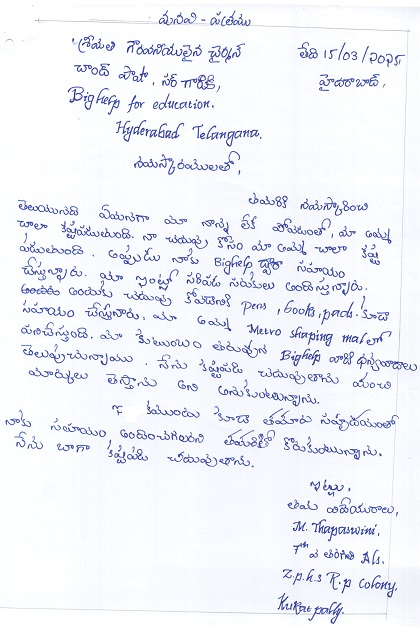 మనవి - పత్రము
శ్రీయుత గౌరవనీయులైన చైర్మన్ తేది 15/03/2025
చాంద్ పాషా, సర్ గారికి హైదరాబాద్,
Bighelp for education.
Hyderabad Telangana.
నమస్కారములతో,
తమరికి నమస్కరించి
తెలుయునది ఏమనగా మా నాన్న లేక పోవడంతో, మా అమ్మ
చాలా కష్టపడుతుంది. నా చదువు కోసం మా అమ్మ చాలా కష్ట
పడుతుంది. అప్పుడు నాకు Bighelp ద్వారా సహాయం
చేస్తున్నారు. మా ఇంట్లో సరిపడ సరుకులు అందిస్తున్నారు.
అందుకు చదువు కోవడానికి pens, books, pads. కూడా
సహాయం చేస్తినారు, మా అమ్మ Metro shaping mal లో
పనిచేస్తుంది. మా కుటుంబం తరుపున Bighelp వారికి ధన్యవాదాలు
తెలుపుచున్నాయు. నేను కష్టపడి చదువుతాను మంచి
మార్కులు తెస్తాను అని అనుకుంటున్నాను.
ఇక ముందు కూడా తమారు సహృదయంతో
నాకు సహాయం, అందించగలరని తమరితో కోరుకుంటున్నాను.
నేను బాగా కష్టపడి చదువుతాను.
ఇట్లు,
తమ విదేయురాలు,
M. Thapaswini,
7th వ తరగతి A/s.
Z.p.h.s R.p colony,
Kukat pally.